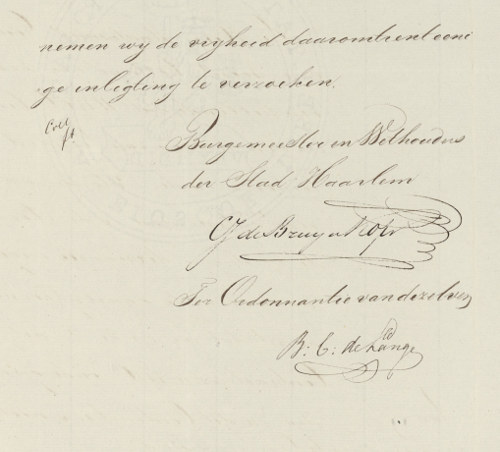 nemen wy de vryheid daaromtrent eeni
ge inligting te verzoeken.
Coll
Burgemeester en Wethouders
der Stad Haarlem
C J de Bruyn Kops
Ter Ordonnantie van dezelven
B: C: de Lange